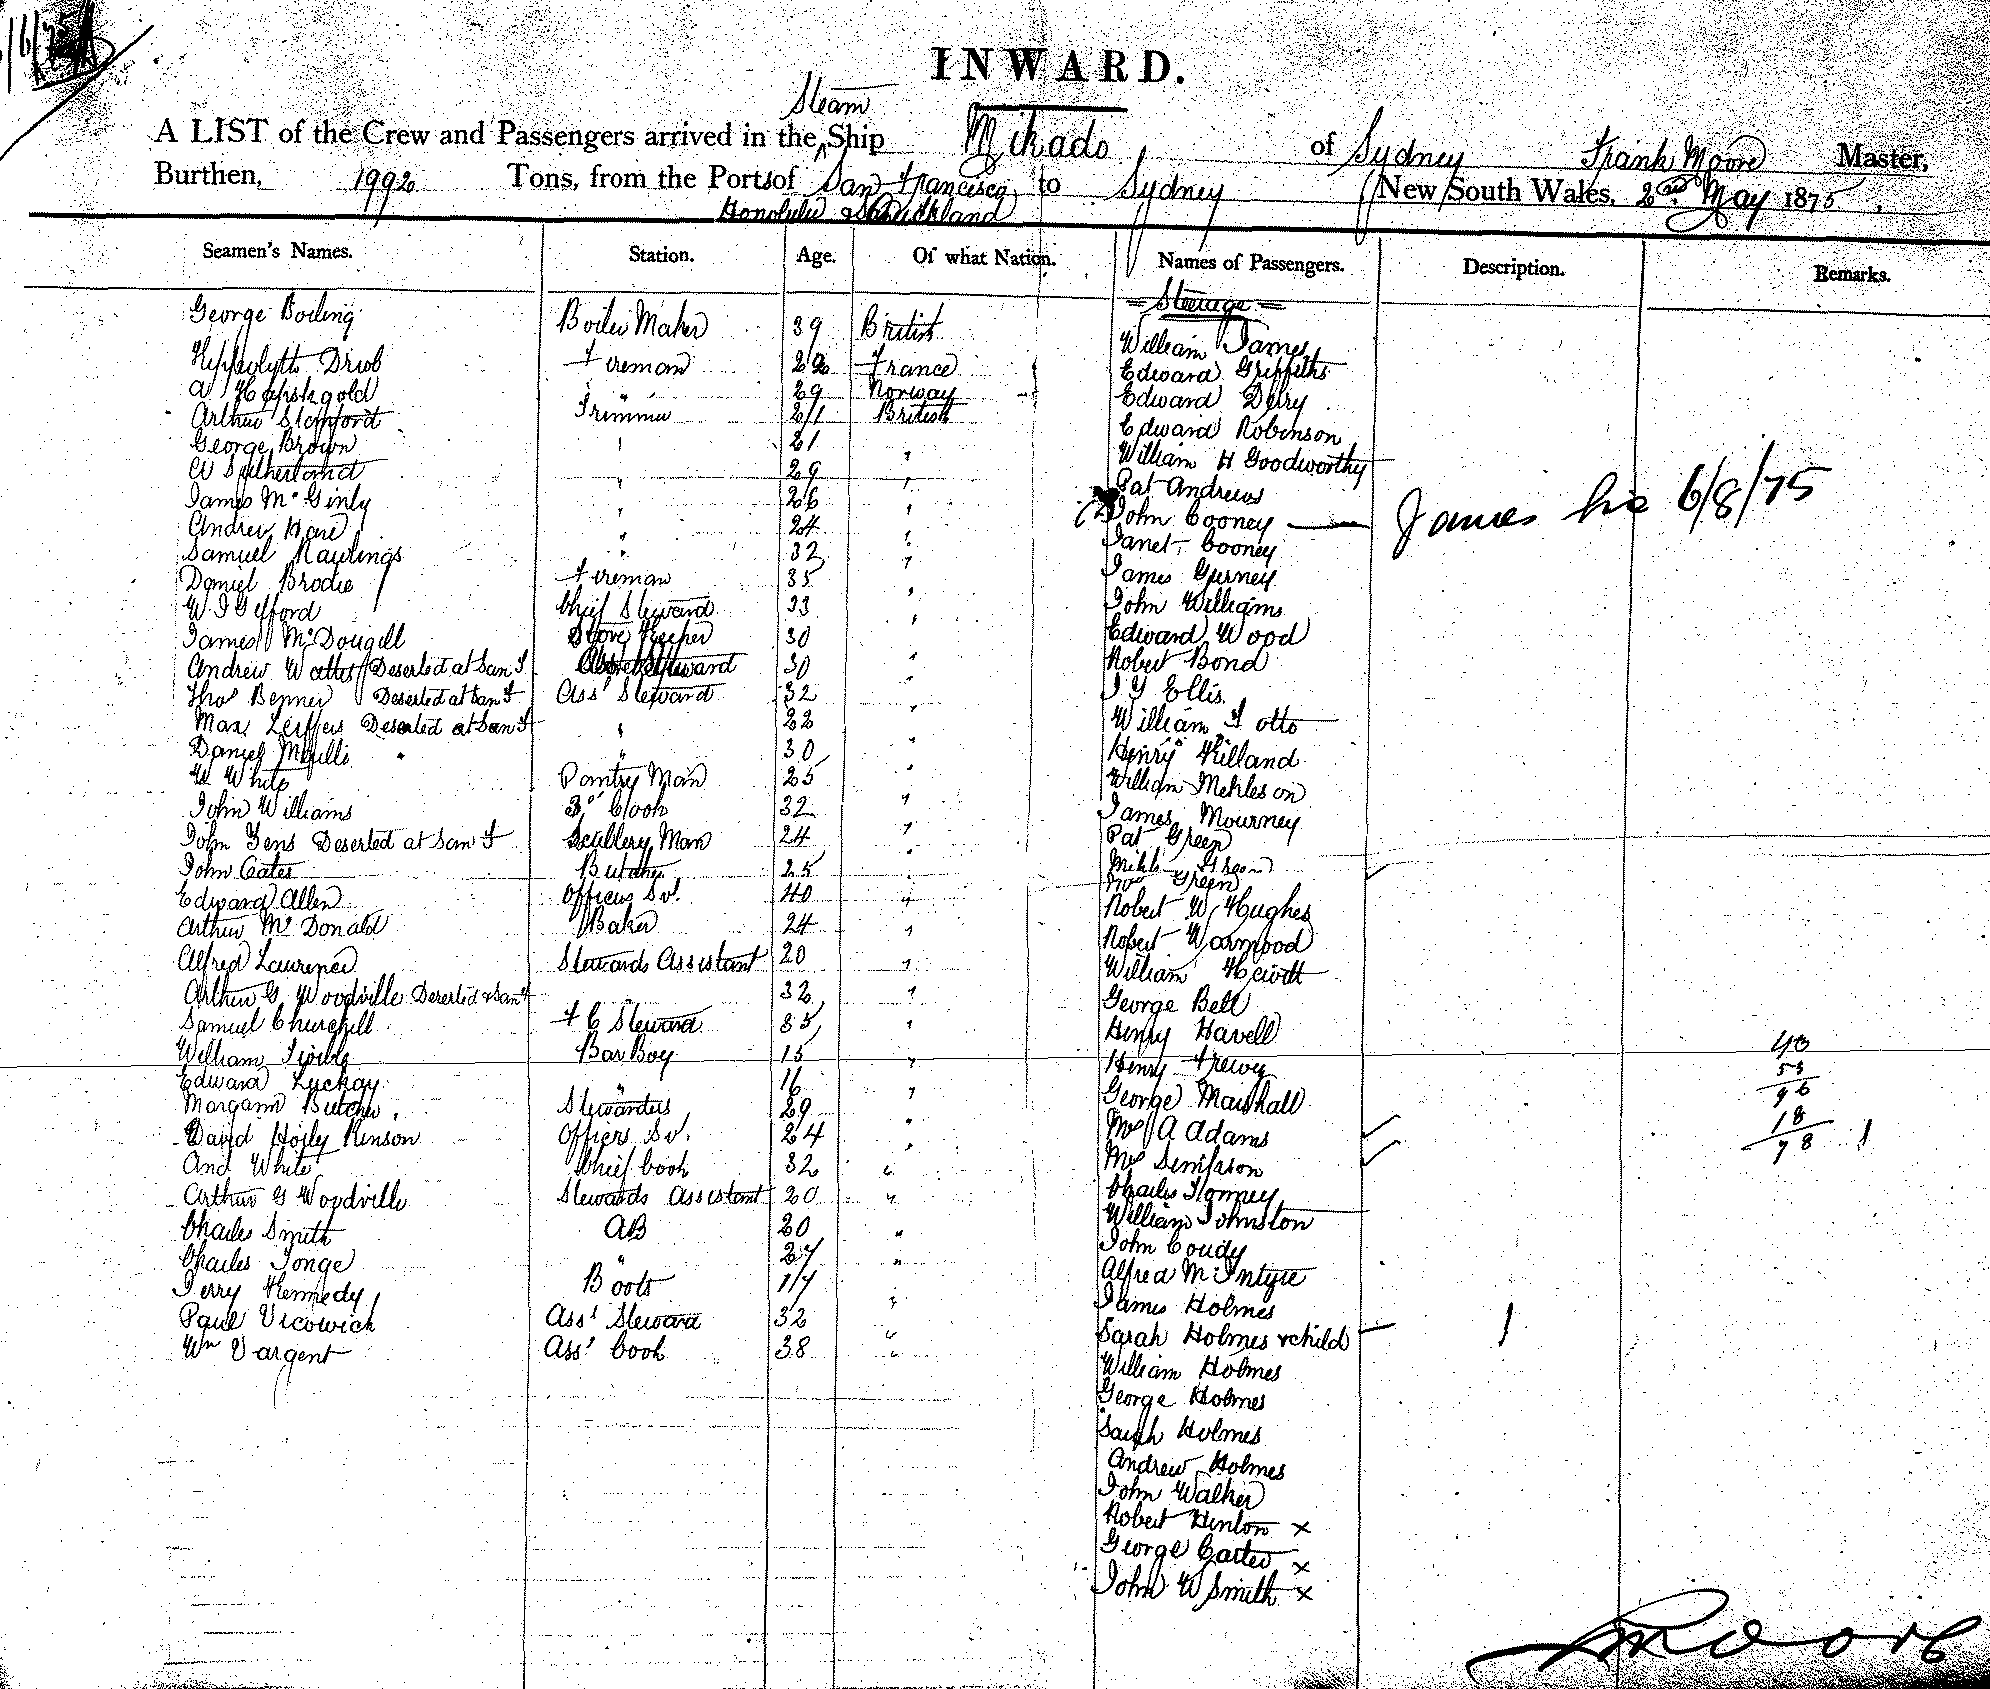 INWARD.
Steam
A LIST of the Crew and Passengers arrived in the Ship Mikado of Sydney Frank Moore Master,
Burthen, 1992 Tons, from the Ports of San Francisco to Sydney New South Wales, 2nd May 1875
Honolulu & Auckland
Seamen's Names. Station. Age. Of what Nation. Names of Passengers. Description. Remarks.
Steerage
George Boiling Boiler Maker 39 British William James
Driob Fireman 22 France Edward Griffiths
A " 29 Norway Edward Delry
Arthur Stopford Trimmer 21 British Edward Robinson
George Brown " 21 " William H Goodworthy
A Sutherland " 29 " Pat Andrews
James McGinly " 26 " John Cooney — James 6/8/75
Andrew Hare " 24 " Janet Cooney
Samuel Rawlings " 32 " James Gurney
Daniel Brodie Fireman 35 " John Williams
W J Gifford Chief Steward 33 " Edward Wood
James McDougall Store Keeper 30 " Robert Bond
Andrew Deserted at San F Steward 30 " J Y Ellis
Thos Benner Deserted at San F Asst Steward 32 " William F Otto
Max Leffers Deserted at San F " 22 " Henry Killand
Daniel " 30 " William Mehleson
W White Pantry Man 25 " James Mourney
John Williams 3rd Cook 32 " Pat Green
John Yens Deserted at San F Scullery Man 24 " Green
John Cates Butcher 25 " Green
Edward Allen Officers Svt. 40 " Robert W Hughes
Arthur McDonald Baker 24 " Robert Warmood
Alfred Laurence Stewards Assistant 20 " William Hewitt
Arthur G Woodville Deserted San F " 32 " George Bell
Samuel Churchill F C Steward 35 " Henry Havell
William Bar Boy 15 " Henry Frewer 40
Edward Luckay " 16 " George Marshall 53
Margann Butcher Stewardess 29 " Mrs A Adams 96
David Hoily Kinson Officers Sv. 24 " Mrs Simpson 18
And White Chief Cook 32 " Charles Tomney 78
Arthur G Woodville Stewards Assistant 20 " William Johnston
Charles Smith AB 20 " John Coudy
Charles Tonge " 27 " Alfred McIntyre
Terry Kennedy Boots 17 " James Holmes
Paul Vicowich Asst Steward 32 " Sarah Holmes & child
Wm Vargent Asst Cook 38 " William Holmes
George Holmes
Sarah Holmes
Andrew Holmes
John Walker
Robert Henton x
George Carter x
John W Smith x
Moore